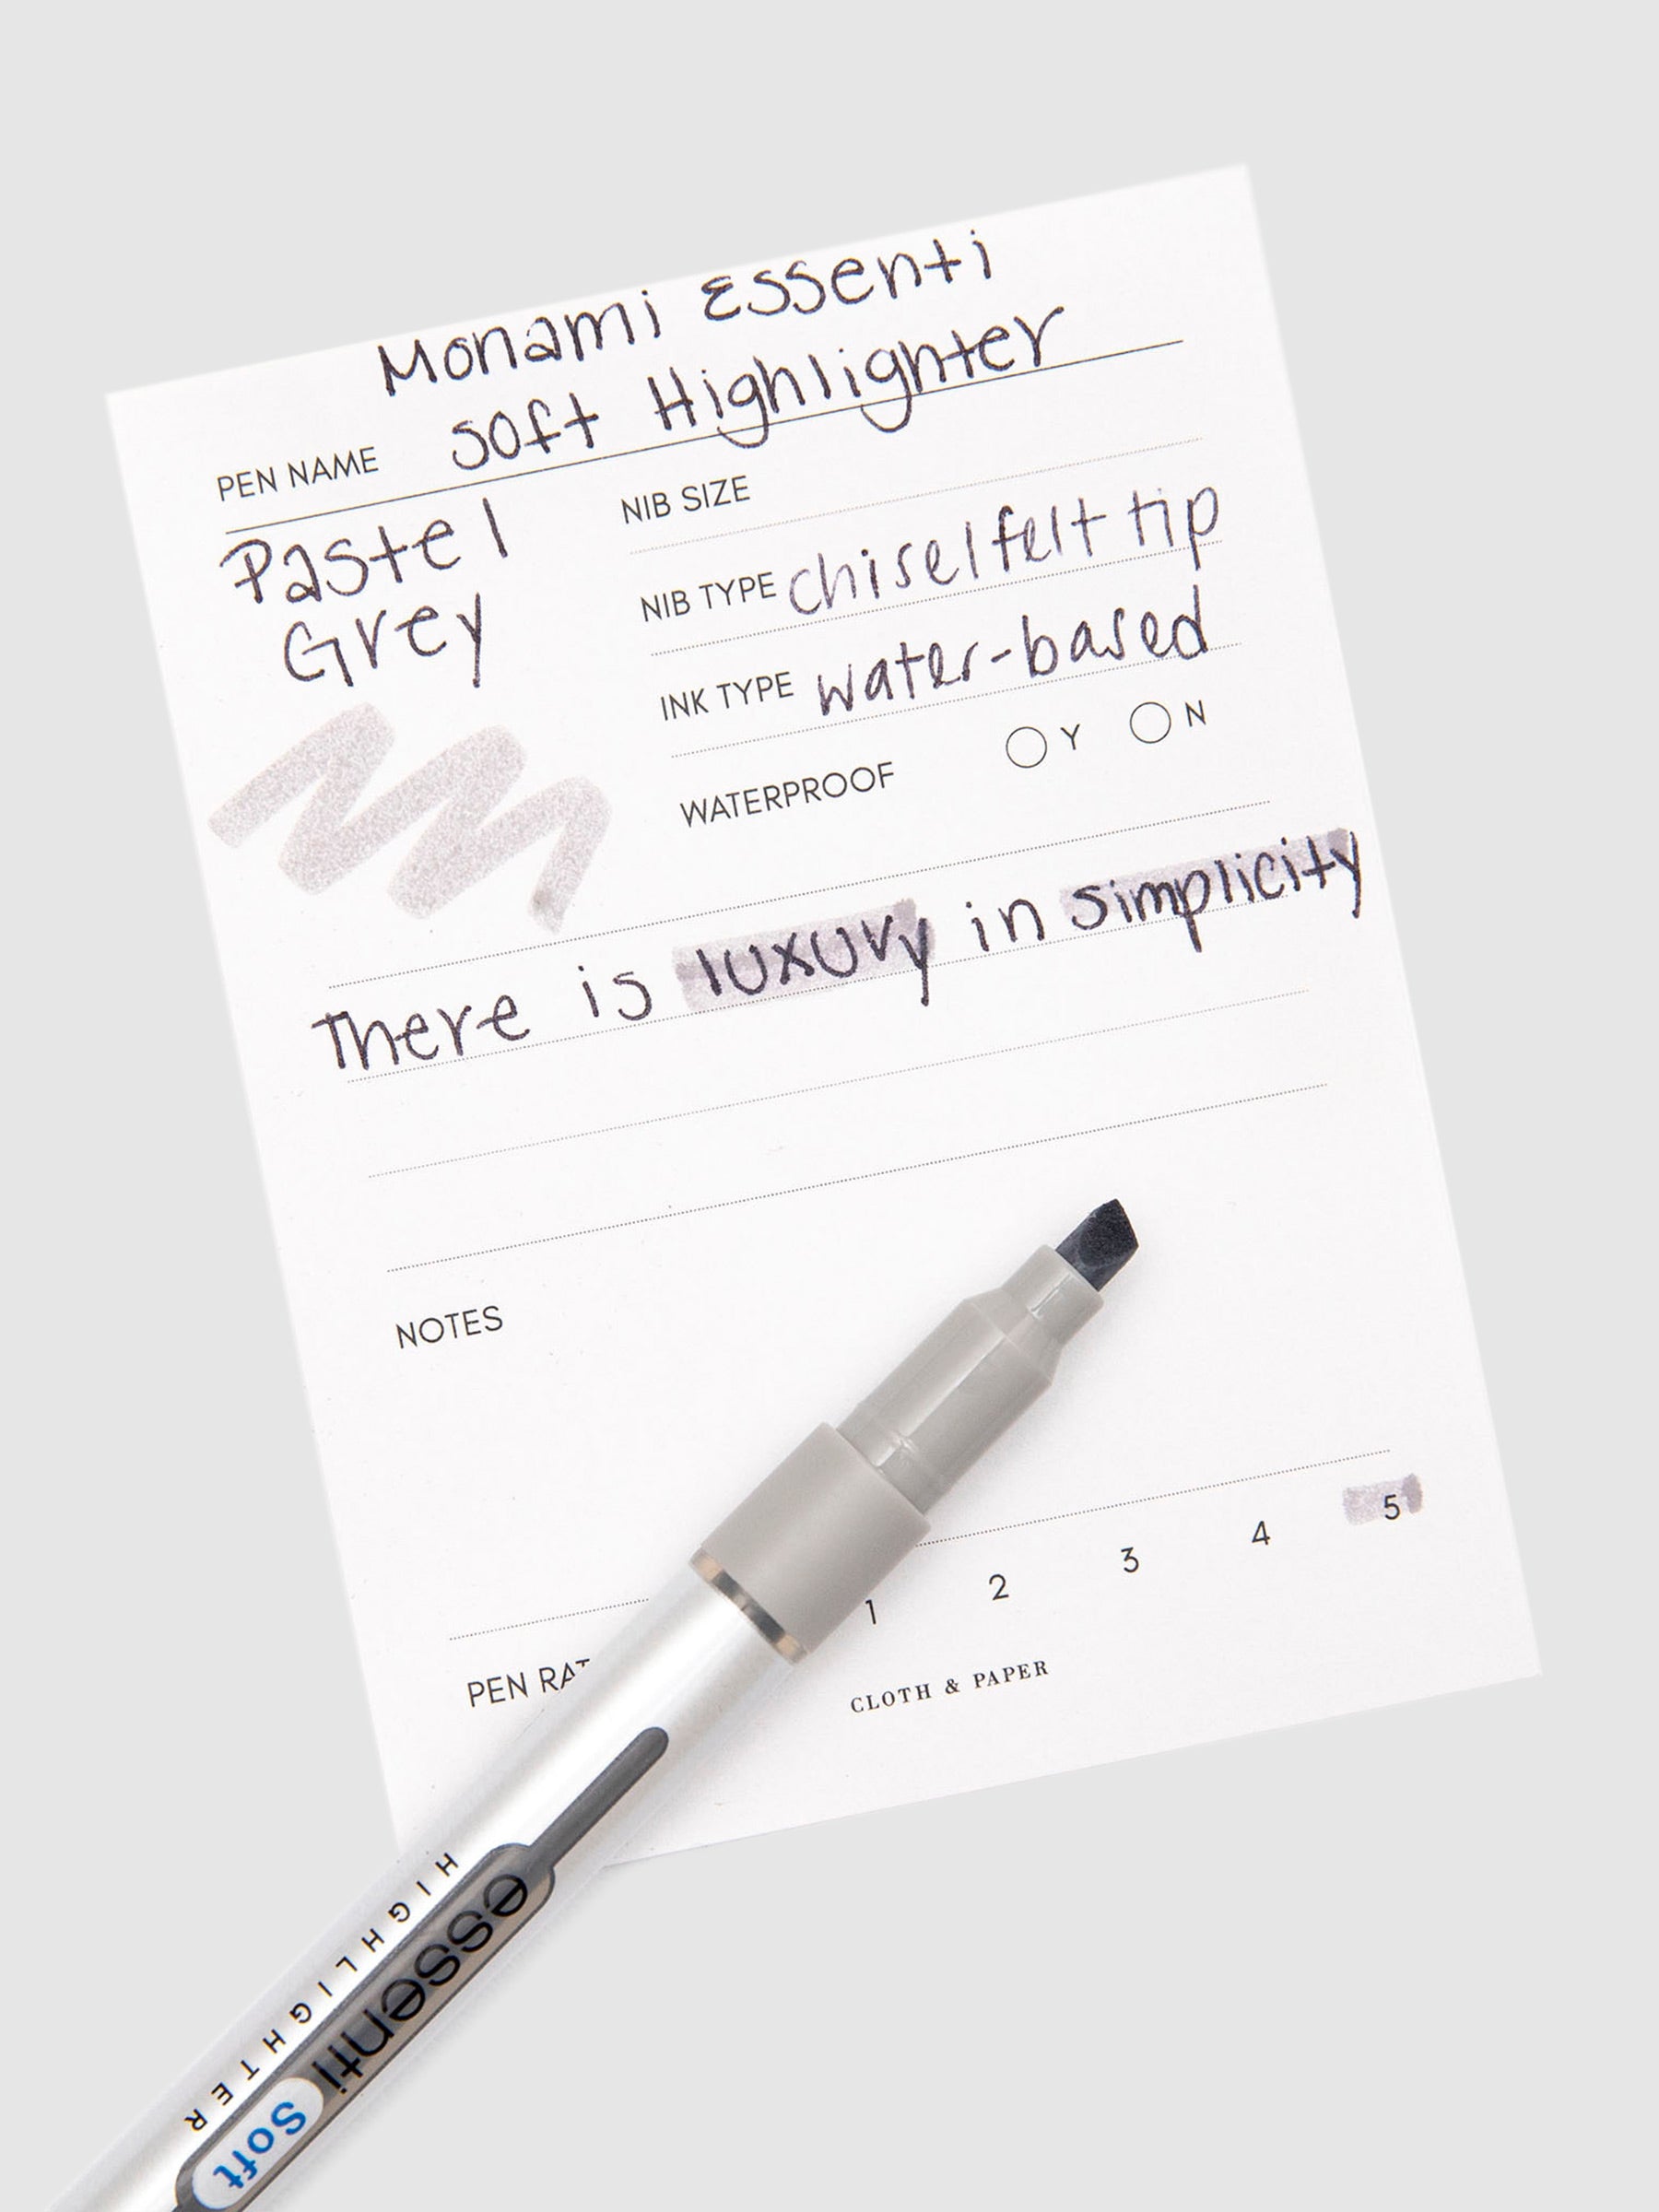 Monami Essenti
PEN NAME Soft Highlighter
Pastel
Grey
NIB SIZE
NIB TYPE chisel felt tip
INK TYPE water-based
WATERPROOF Y N
There is luxury in simplicity
NOTES
PEN RAT 1 2 3 4 5
CLOTH & PAPER
HIGHLIGHTER
essenti Soft